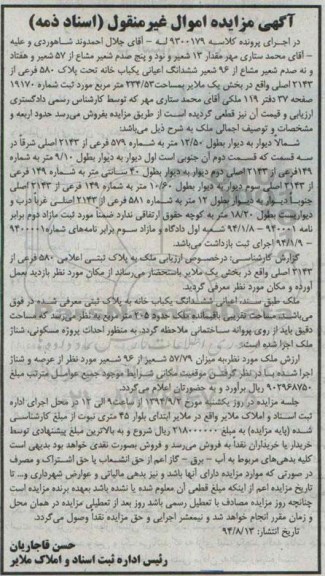 آگهی مزایده اموال غیرمنقول (اسناد ذمه)
در اجرای پرونده کلاسه ۹۳۰۰۱۷۹ له - آقای جلال احمدوند شاهوردی و علیه
- آقای محمد ستاری مهر مقدار ۱۳ شعیر و نود و پنج صدم شعیر مشاع از ۵۷ شعیر و هفتاد
و نه صدم شعیر مشاع از ۹۶ شعیر ششدانگ اعیانی یکباب خانه تحت پلاک ۵۸۰ فرعی از
۲۱۴۳ اصلی واقع در بخش یک ملایر بمساحت ۲۳۴/۵۳ متر مربع مورد ثبت شماره ۱۱۹۱۷۰
صفحه ۳۷ دفتر ۱۱۹ ملکی آقای محمد ستاری مهر که توسط کارشناس رسمی دادگستری
ارزیابی و قیمت آن نیز قطعی گردیده است از طریق مزایده بفروش میرسد حدود اربعه و
مشخصات و توصیف اجمالی ملک به شرح ذیل می‌باشد:
شمالا دیوار به دیوار بطول ۱۲/۵۰ متر به شماره ۵۷۹ فرعی از ۲۱۴۳ اصلی شرقاً در
سه قسمت که قسمت دوم آن جنوبی است اول دیوار به دیوار بطول ۹/۱۰ متر به شماره
۱۴۹فرعی از ۲۱۴۳ اصلی دوم دیوار به دیوار بطول ۴۰ سانتی متر به شماره ۱۴۹ فرعی
از ۲۱۴۳ اصلی سوم دیوار به دیوار بطول ۱۰/۶۰ متر به شماره ۱۴۹ فرعی از ۲۱۴۳ اصلی
جنوباً دیوار به دیوار بطول ۱۲ متر به شماره ۵۸۱ فرعی از ۲۱۴۳ اصلی غرباً درب و
دیواریست بطول ۱۸/۲۰ متر به کوچه حقوق ارتفاقی ندارد ضمناً مورد ثبت مازاد دوم برابر
نامه ۹۴۰۰۰۱ - ۹۴/۱/۸ شعبه اول دادگاه و مازاد سوم برابر نامه‌های شماره۹۴۰۰۰۰۱
- ۹۴/۱/۹ اجرای ثبت بازداشت می‌باشد.
گزارش کارشناسی: درخصوص ارزیابی ملک به پلاک ثبتی اعلامی ۵۸۰ فرعی از
۲۱۴۳ اصلی واقع در بخش یک ملایر باستحضار می‌رساند از مکان مورد نظر بازدید بعمل
آورده و مکان مورد نظر معرفی گردید.
ملک طبق سند، اعیانی ششدانگ یکباب خانه به پلاک ثبتی معرفی شده در فوق
می‌باشد. مساحت تقریبی باقیمانده ملک حدود ۲۰۵ متر مربع به نظر می‌رسد که مساحت
دقیق باید از روی پروانه ساختمانی ملاحظه گردد. به منظور احداث پروژه مسکونی، شناژ
ملک اجرا شده است:
ارزش ملک مورد نظر به میزان ۵۷/۷۹ شعیر از ۹۶ شعیر مورد نظر از عرصه و شناژ
اجرا شده با در نظر گرفتن موقعیت مکانی شرایط موجود جمیع عوامل مترتب مبلغ
۹۰۲۹۶۸۷۵۰ ریال برآورد و به حضورتان اعلام می‌گردد.
جلسه مزایده در روز یکشنبه مورخ ۱۳۹۴/۹/۲ از ساعت ۹ الی ۱۲ در محل اجرای اداره
ثبت اسناد و املاک ملایر واقع در ملایر ابتدای بلوار ۴۵ متری نبوت از مبلغ کارشناسی
شده (پایه مزایده) به مبلغ ۲۱۸۰۰۰۰۰۰ ریال شروع و به بالاترین مبلغ پیشنهادی توسط
خریدار یا خریداران نقداً به فروش می‌رسد و فروش بصورت نقدی خواهد بود بدیهی است
کلیه بدهی‌های مربوط به آب - برق - گاز اعم از حق انشعاب یا حق اشتراک و مصرف
در صورتی که موارد مزایده دارای آنها باشد و نیز بدهی مالیاتی و عوارض شهرداری و... تا
تاریخ مزایده اعم از اینکه مبلغ قطعی آن معلوم شده یا نشده باشد بعهده برنده مزایده است
چنانچه روز مزایده مصادف با تعطیل رسمی باشد روز بعد از تعطیلی مزایده در همان محل
و زمان مقرر انجام خواهد شد و نیمعشر اجرایی و حق مزایده نقداً وصول می‌گردد.
تاریخ انتشار: ۹۴/۸/۱۳
حسن قاجاریان
رئیس اداره ثبت اسناد و املاک ملایر